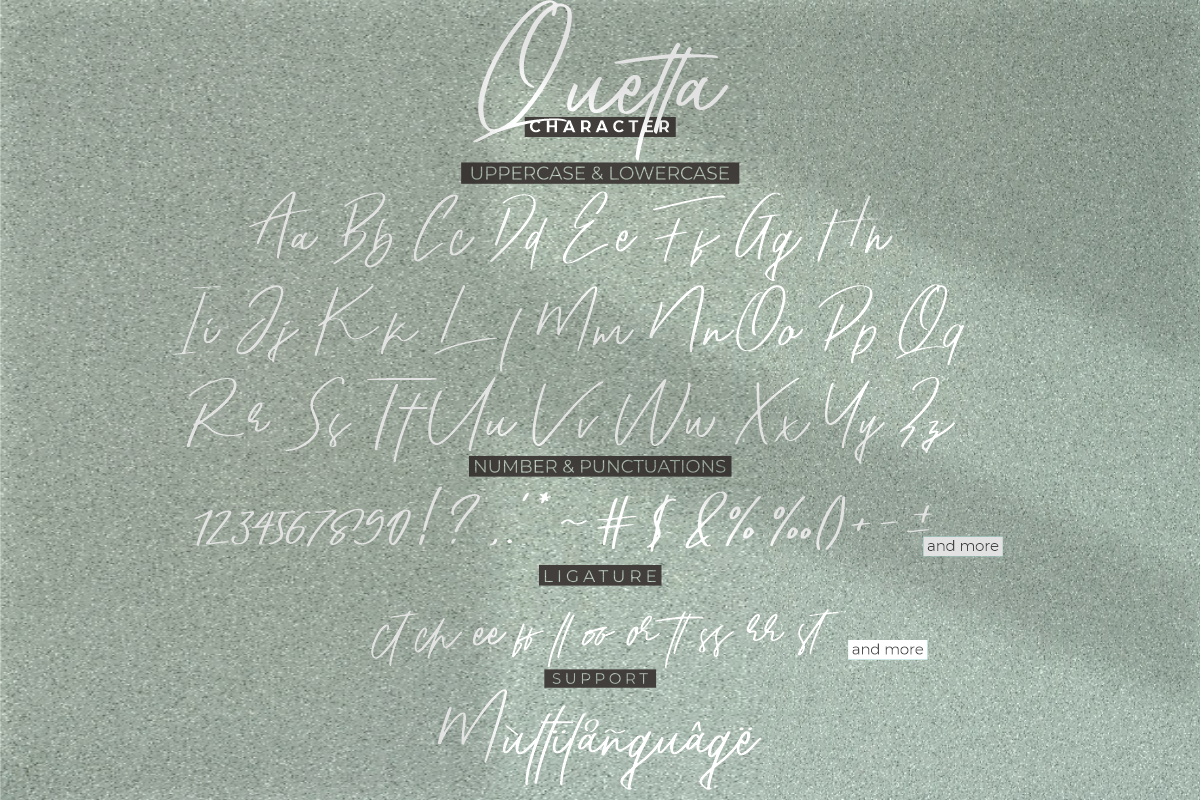 Quetta
CHARACTER
UPPERCASE & LOWERCASE
Aa Bb Cc Dd Ee Ff Gg Hh
Ii Jj Kk Ll Mm Nn Oo Pp Qq
Rr Ss Tt Uu Vv Ww Xx Yy Zz
NUMBER & PUNCTUATIONS
1234567890!? , . ' * ~ # $ & % ‰ () + - ±
and more
LIGATURE
ct ch ee ff ll oo or tt ss rr st
and more
SUPPORT
Mùltilåñguâgë